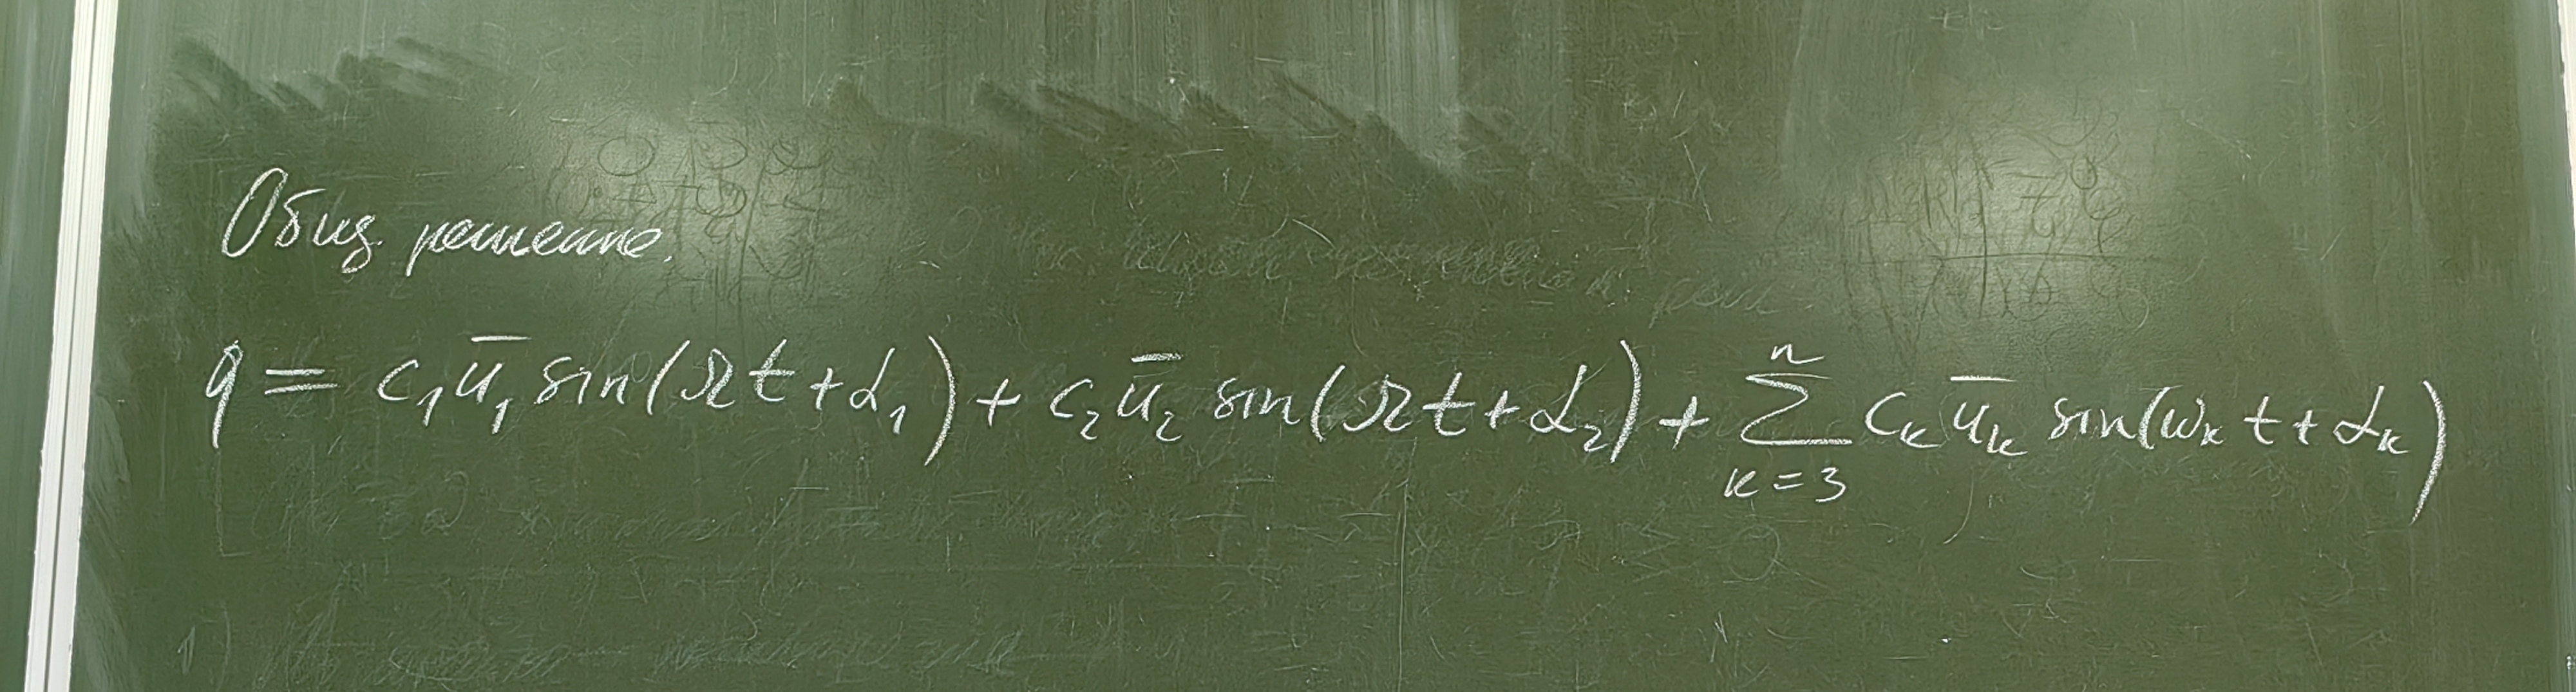 Общ. решение.
q = c₁ū₁ sin(Ωt+α₁) + c₂ū₂ sin(Ωt+α₂) + ∑ₖ₌₃ⁿ cₖūₖ sin(ωₖt+αₖ)